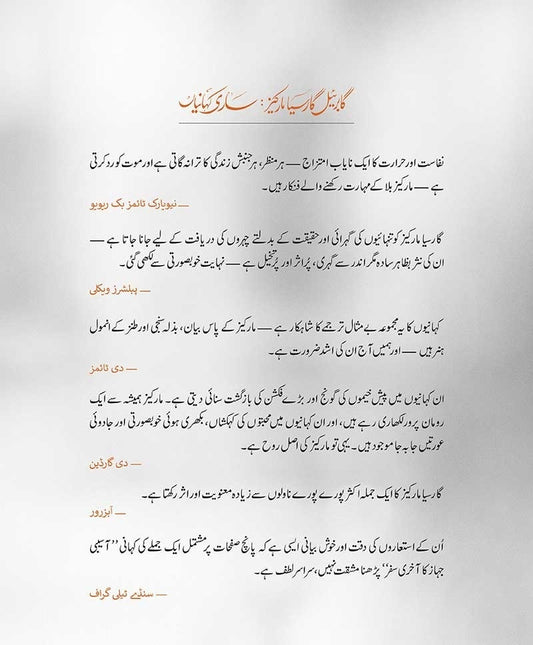 گابریئل گارسیا مارکیز: ساری کہانیاں
نفاست اور حرارت کا ایک نایاب امتزاج — ہر منظر، ہر جنبش زندگی کا ترانہ گاتی ہے اور موت کو رد کرتی
ہے — مارکیز بلا کے مہارت رکھنے والے فنکار ہیں۔
— نیویارک ٹائمز بک ریویو
گارسیا مارکیز کو تنہائیوں کی گہرائی اور حقیقت کے بدلتے چہروں کی دریافت کے لیے جانا جاتا ہے —
ان کی نثر بظاہر سادہ مگر اندر سے گہری، پُراثر اور پُرتخیل ہے — نہایت خوبصورتی سے لکھی گئی۔
— پبلشرز ویکلی
کہانیوں کا یہ مجموعہ بے مثال ترجمے کا شاہکار ہے — مارکیز کے پاس بیان، بذلہ سنجی اور طنز کے انمول
ہنر ہیں — اور ہمیں آج ان کی اشد ضرورت ہے۔
— دی ٹائمز
ان کہانیوں میں پیش خیموں کی گونج اور بڑے فکشن کی بازگشت سنائی دیتی ہے۔ مارکیز ہمیشہ سے ایک
رومان پرور لکھاری رہے ہیں، اور ان کہانیوں میں محبتوں کی کہکشاں، بکھری ہوئی خوبصورتی اور جادوئی
عورتیں جا بہ جا موجود ہیں۔ یہی تو مارکیز کی اصل روح ہے۔
— دی گارڈین
گارسیا مارکیز کا ایک جملہ اکثر پورے پورے ناولوں سے زیادہ معنویت اور اثر رکھتا ہے۔
— آبزرور
اُن کے استعاروں کی دقت اور خوش بیانی ایسی ہے کہ پانچ صفحات پر مشتمل ایک جملے کی کہانی ’’آسیبی
جہاز کا آخری سفر‘‘ پڑھنا مشقت نہیں، سراسر لطف ہے۔
— سنڈے ٹیلی گراف